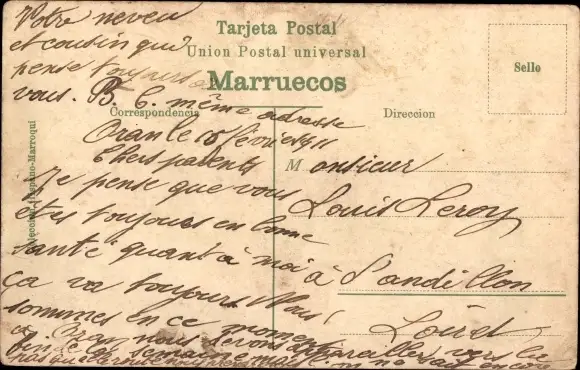 Votre neveu
et cousin qui
pense toujours à
vous. B. C. même adresse
Tarjeta Postal
Union Postal universal
Marruecos
Sello
Correspondencia
Direccion
Oran le 15 février 11
Chers parents
Je pense que vous
êtes toujours en bonne
santé quant à moi
ça va toujours Nous
sommes en ce moment
a Oran nous devons
Monsieur
Louis Leroy
à Sandillon
Loiret
Hispano-Marroqui